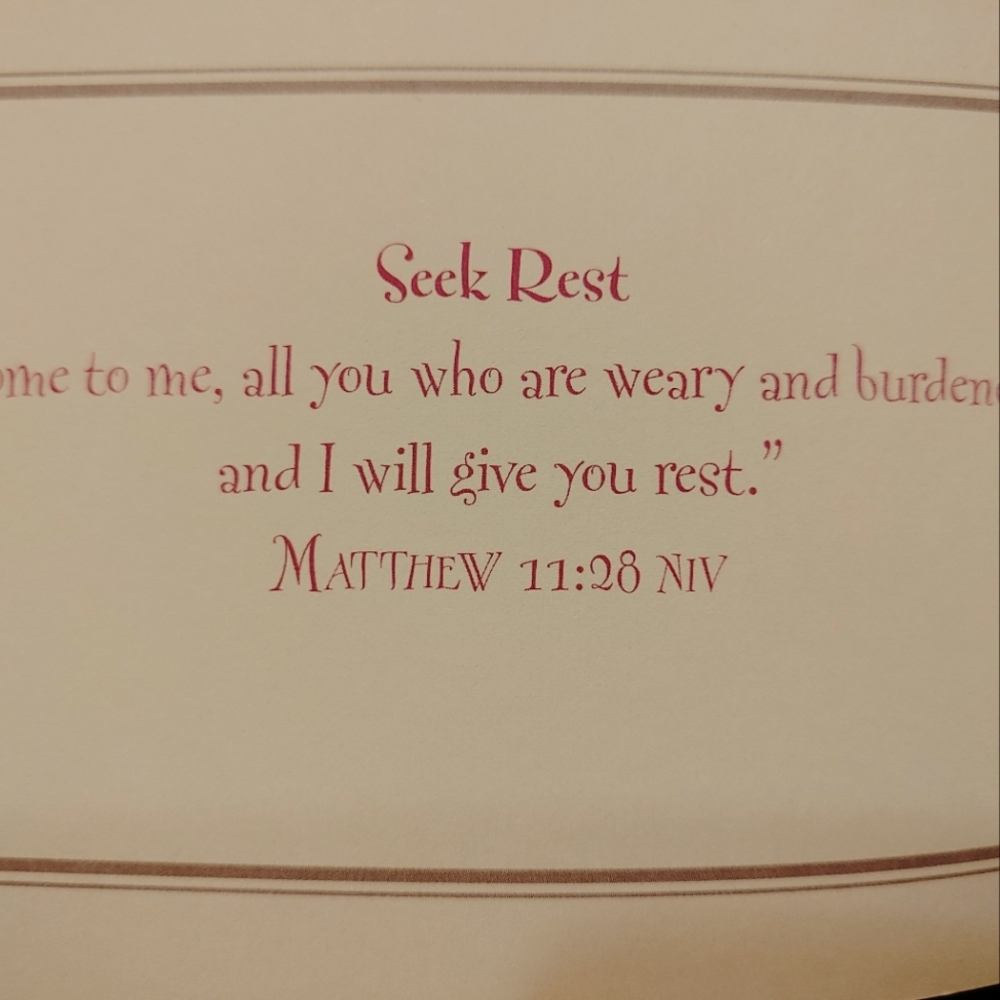 Seek Rest
ome to me, all you who are weary and burden
and I will give you rest.”
MATTHEW 11:28 NIV